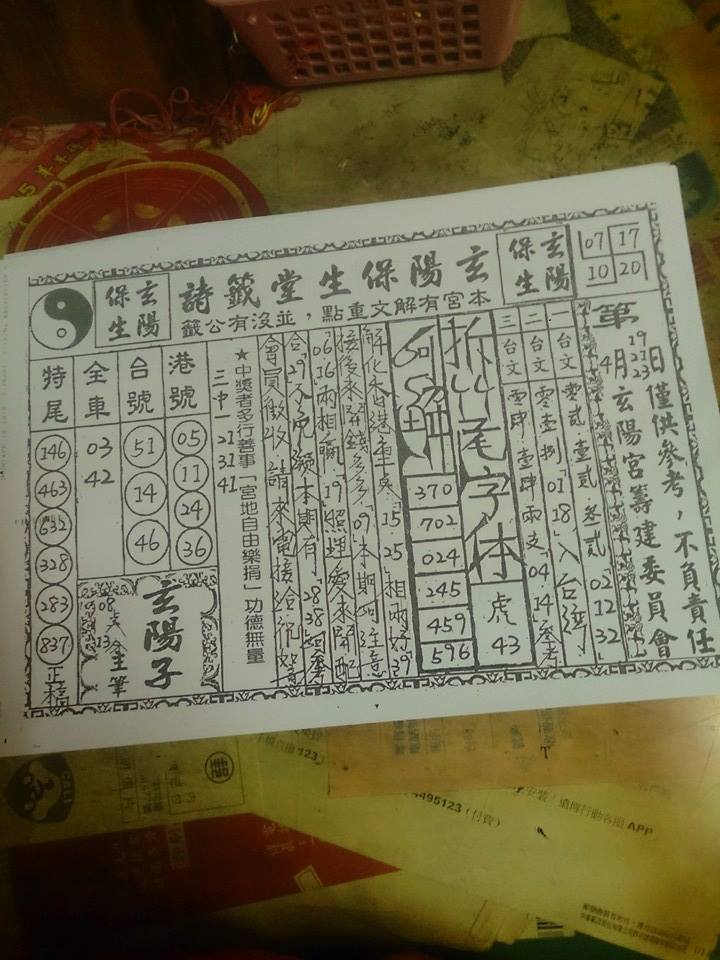 玄陽保生堂籤詩
本宮有解文重點,並沒有公籤
玄陽保生
玄陽保生
07 17
10 20
第
19
21
23
4月 日僅供參考,不負責任
玄陽宮籌建委員會
一台文 零貳 壹貳 叁貳 02 12 32
二台文 零壹捌「01 18」入台灣
三台文 零肆 壹肆 兩支「04 14」參考
拆小尾字体
虎
43
370
702
024
245
459
596
解化香港車奧「15 25」相兩好「39」
接後來開錢多多「09」本期
「06 16」兩相贏「19」照理愛來開配
合「29」本期有「28 38」參考
會員繳收 請來電接給
★中獎者多行善事「宮地自由樂捐」功德無量
三中一 21 31 41
港號
05
11
24
36
台號
51
14
46
全車
03
42
特尾
146
463
632
328
283
837
正稿
玄陽子
08 支
13 全筆
123)
4495123(付費)
安裝「遠傳行動客服APP